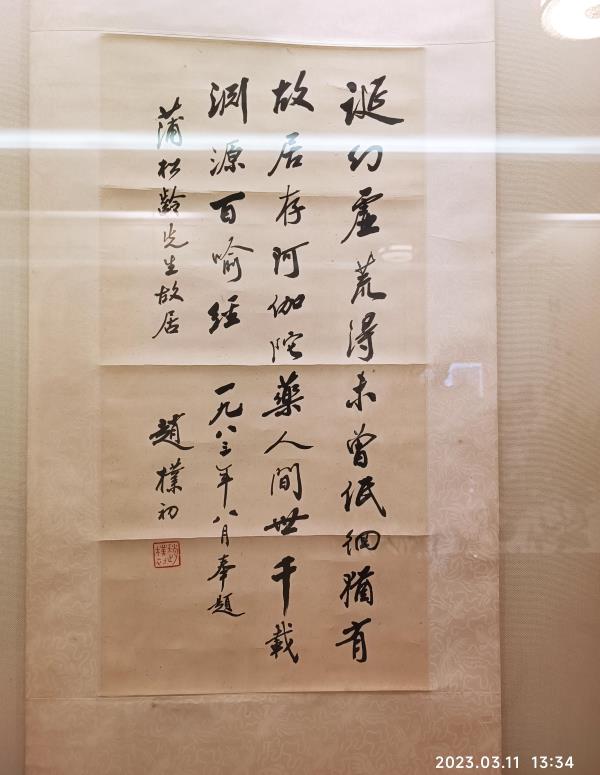 诞幻虚荒得未曾低徊犹有
故居存阿伽陀藥人間世千載
渊源百喻經 一九八三年八月奉題
蒲松龄先生故居 趙樸初
2023.03.11 13:34